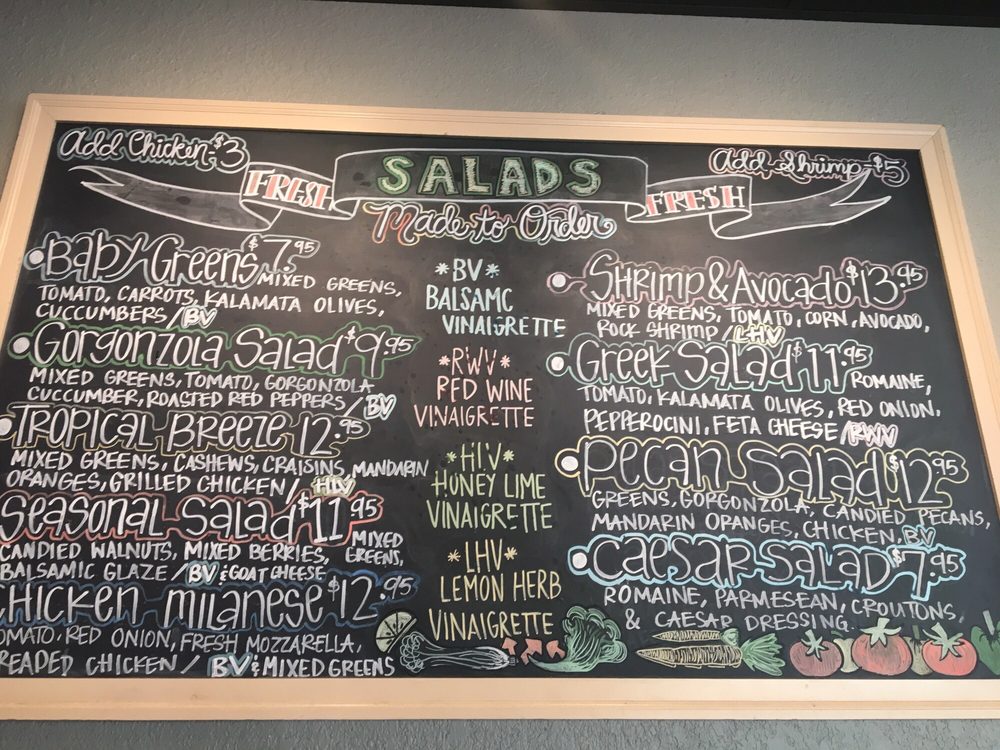 Add Chicken-$3
Add Shrimp-$5
FRESH SALADS FRESH
Made to Order
Baby Greens $7.95 MIXED GREENS,
TOMATO, CARROTS, KALAMATA OLIVES,
CUCCUMBERS / BV
Gorgonzola Salad $9.95
MIXED GREENS, TOMATO, GORGONZOLA
CUCUMBER, ROASTED RED PEPPERS / BV
TROPICAL BREEZE 12.95
MIXED GREENS, CASHEWS, CRAISINS, MANDARIN
ORANGES, GRILLED CHICKEN / HLV
Seasonal Salad $11.95 MIXED
CANDIED WALNUTS, MIXED BERRIES, GREENS,
BALSAMIC GLAZE / BV & GOAT CHEESE
CHICKEN MILANESE $12.95
TOMATO, RED ONION, FRESH MOZZARELLA,
READED CHICKEN / BV & MIXED GREENS
*BV*
BALSAMC
VINAIGRETTE
*RWV*
RED WINE
VINAIGRETTE
*HLV*
HONEY LIME
VINAIGRETTE
*LHV*
LEMON HERB
VINAIGRETTE
SHRIMP & AVOCADO $13.95
MIXED GREENS, TOMATO, CORN, AVOCADO,
ROCK SHRIMP / LHV
Greek Salad $11.95 ROMAINE,
TOMATO, KALAMATA OLIVES, RED ONION,
PEPPEROCINI, FETA CHEESE / RWV
Pecan Salad $12.95
GREENS, GORGONZOLA, CANDIED PECANS,
MANDARIN ORANGES, CHICKEN, BV
CAESAR SALAD $7.95
ROMAINE, PARMESEAN, CROUTONS,
& CAESAR DRESSING